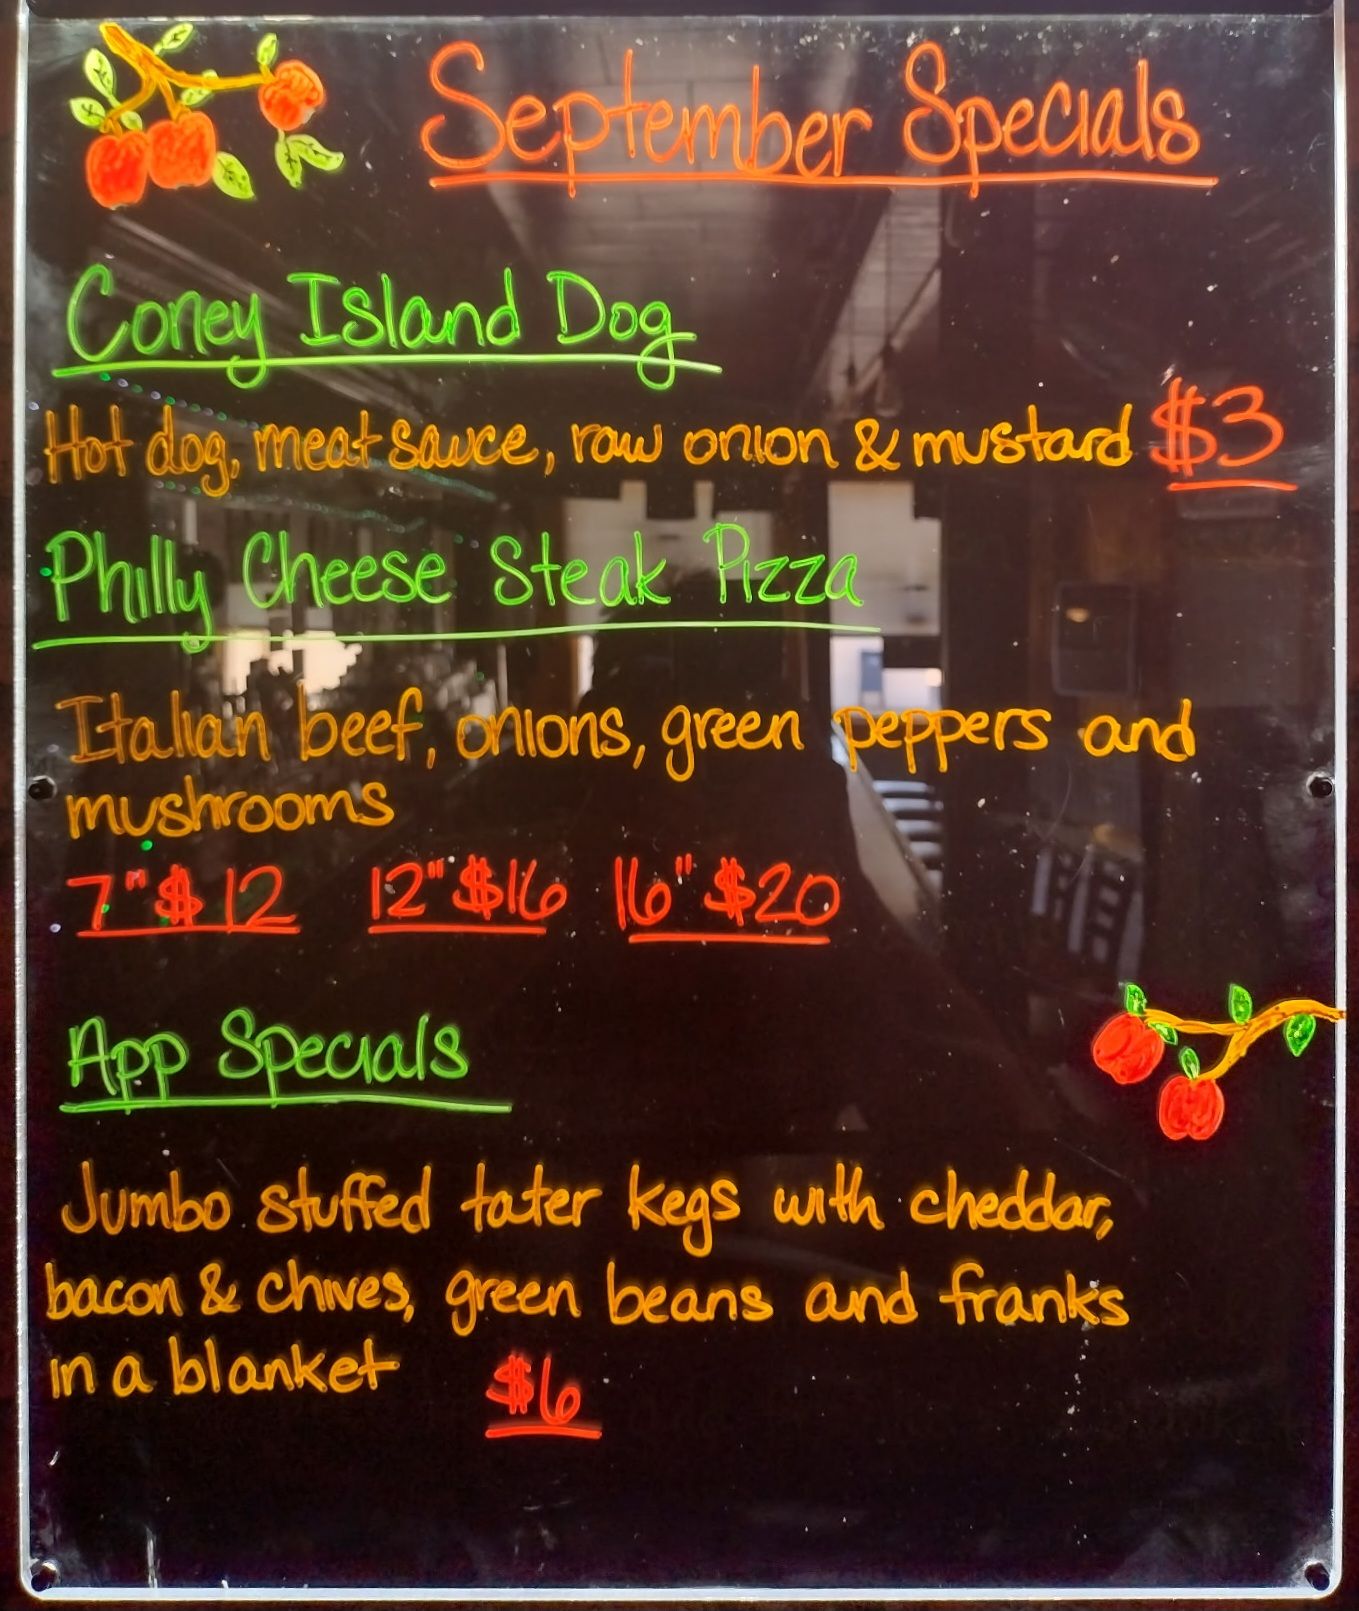 September Specials
Coney Island Dog
Hot dog, meat sauce, raw onion & mustard $3
Philly Cheese Steak Pizza
Italian beef, onions, green peppers and
mushrooms
7" $12 12" $16 16" $20
App Specials
Jumbo stuffed tater kegs with cheddar,
bacon & chives, green beans and franks
in a blanket $6